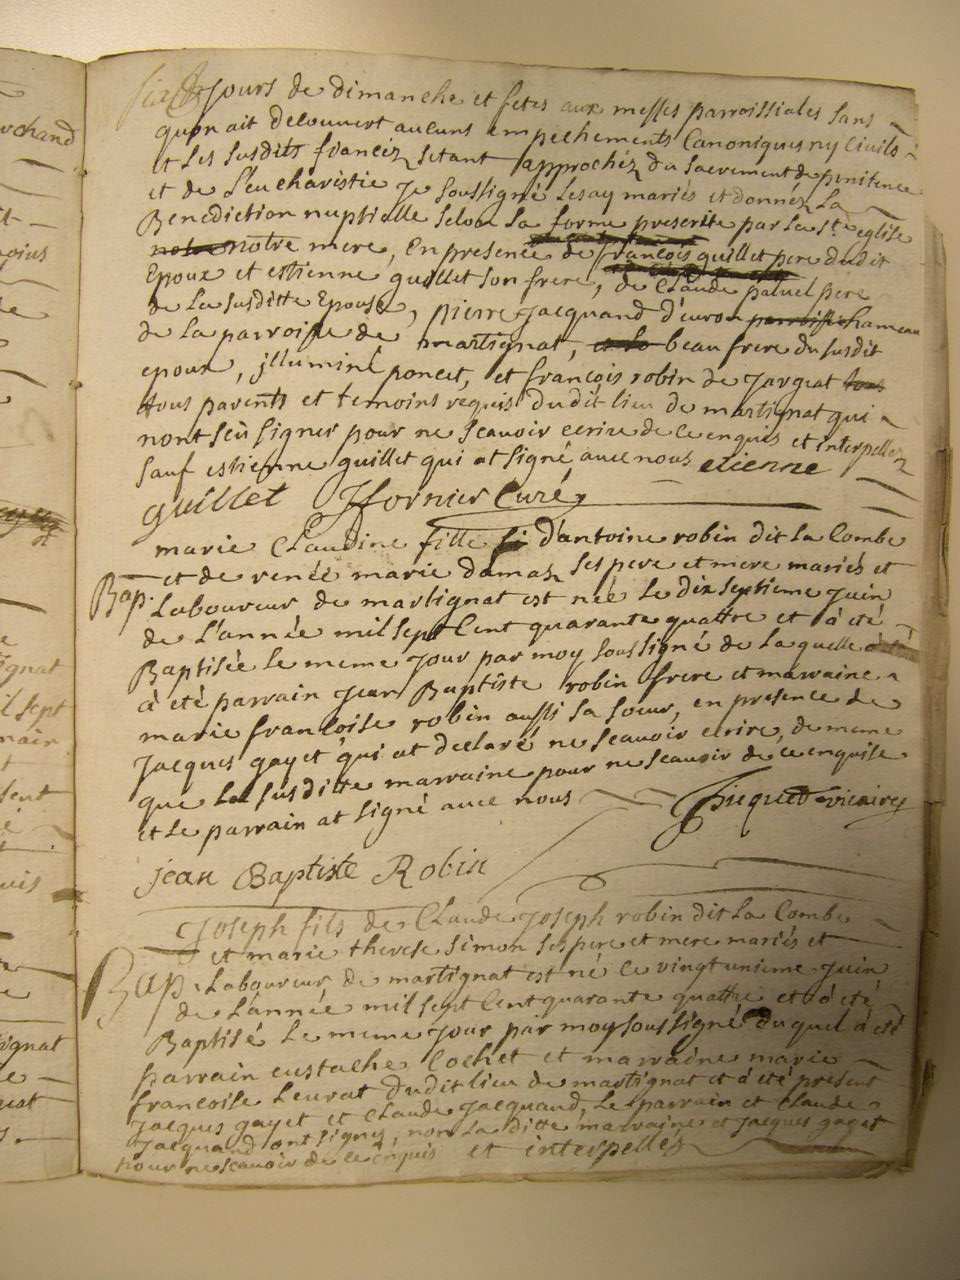 jours de dimanche et fetes aux messes parroissiales sans
quon ait decouvert aucuns empechements Canoniques ny Civils
et les susdits fiancez setant approchéz du sacrement de penitence
et de l'eucharistie je soussigné les ay mariés et donnéz la
Benediction nuptialle selon la forme prescrite par la ste eglise
notre mere, en presence de françois guillet pere dudit
Epoux et estienne guillet son frere, de Claude paluel pere
de la susditte Epouse, pierre jacquand d'euron hameau
de la parroisse de martignat, beau frere du susdit
epoux, illuminé poncet, et françois robin de jargeat
tous parents et temoins requis dudit lieu de martignat qui
nont seû signer pour ne scavoir ecrire de ce enquis et interpellez
sauf estienne guillet qui at signé avec nous etienne
guillet Jfornier Curé
marie Claudine fille d'antoine robin dit la Combe
et de renée marie damaz ses pere et mere mariés et
Bap. Laboureur de martignat est née le dix septieme juin
de L'année mil sept Cent quarante quattre et à été
Baptisée le meme jour par moy soussigné de la quelle
à été parrain jean Baptiste robin frere et marraine
marie francoise robin aussi sa soeur, en presence de
jacques gayet qui at declaré ne scavoir ecrire, de meme
que la susditte marraine pour ne scavoir de ce enquise
et le parrain at signé avec nous vicaire
jean Baptiste Robin
Joseph fils de Claude Joseph robin dit la Combe
et marie therese simon ses pere et mere mariés et
Bap. Laboureur de martignat est né le vingt unieme juin
de L'année mil sept Cent quarante quattre et à été
Baptisé Le meme jour par moy soussigné duquel à été
parrain eustache Cochet et marraine marie
francoise Leurat dudit lieu de martignat et à été present
jacques gayet et Claude jacquand, Le parrain et Claude
jacquand ont signés, non la ditte marraine et jacques gayet
pour ne scavoir de ce enquis et interpellés